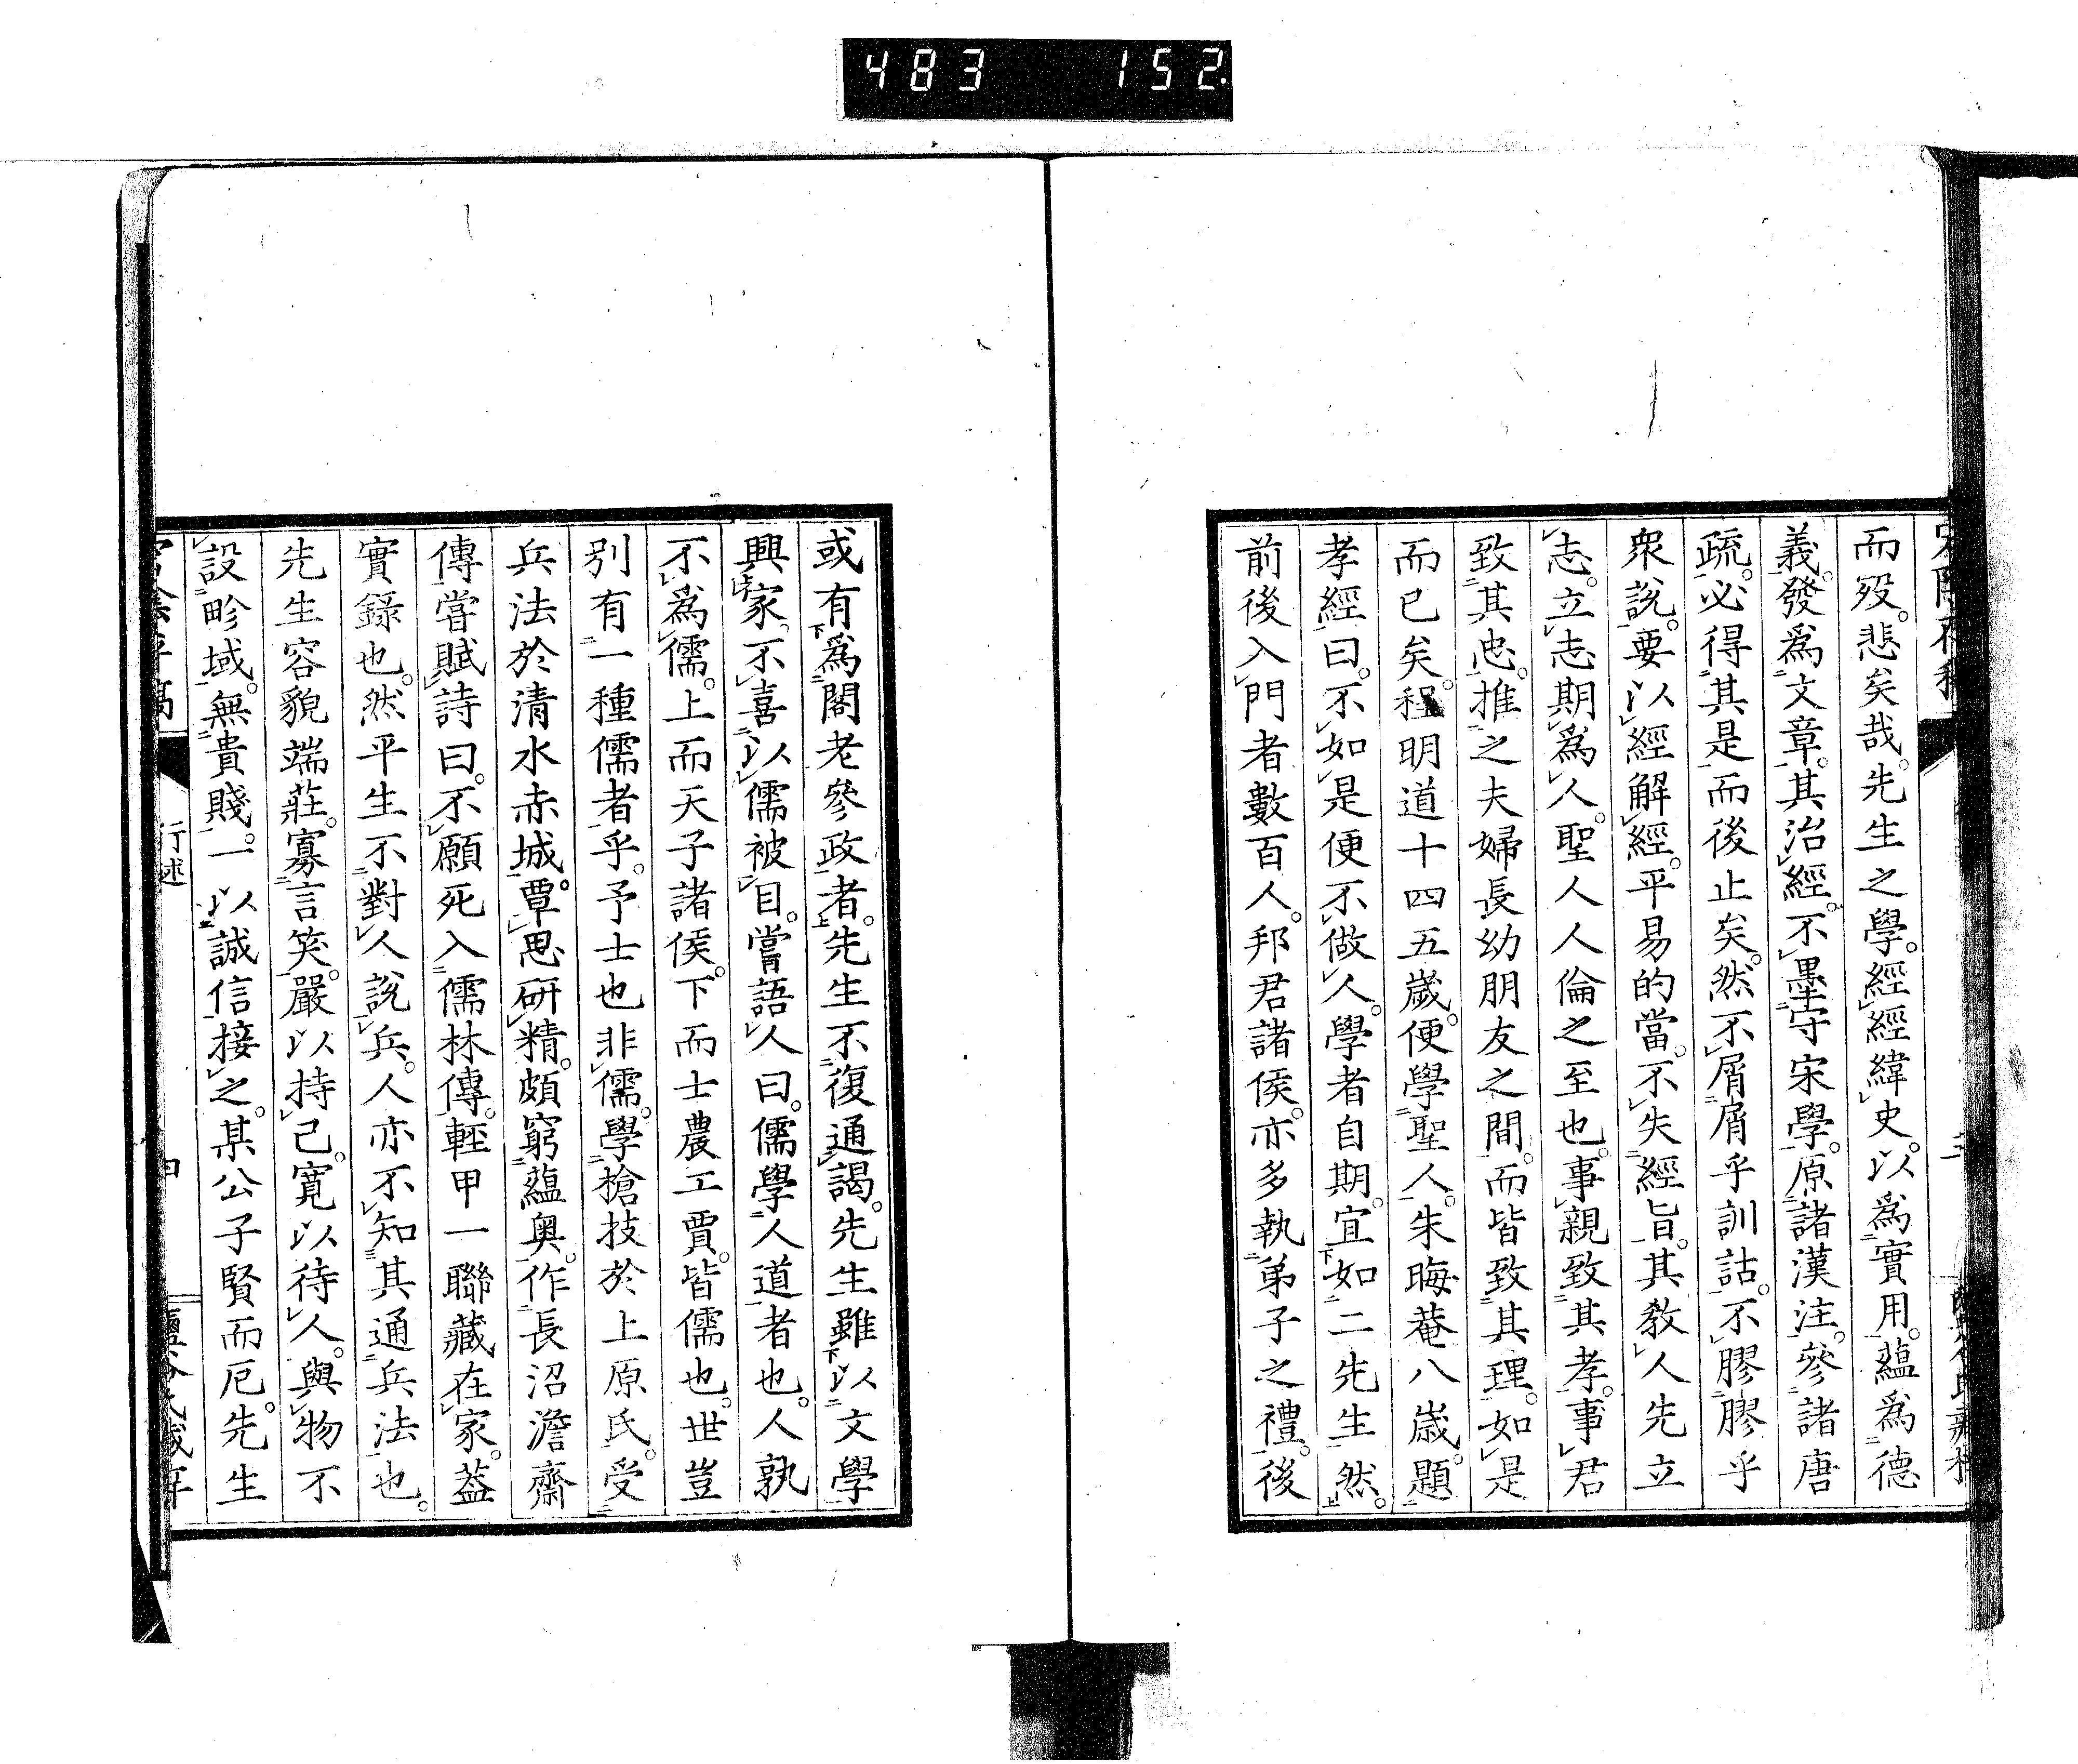 483 152
而歿。悲矣哉。先生之學。經經緯史。以爲實用。蘊爲德
義。發爲文章。其治經。不墨守宋學。原諸漢注。參諸唐
疏。必得其是而後止矣。然不屑屑乎訓詁。不膠膠乎
衆說。要以經解經。平易的當。不失經旨。其教人先立
志。立志期爲人。聖人人倫之至也。事親致其孝。事君
致其忠。推之夫婦長幼朋友之間。而皆致其理。如是
而已矣。程明道十四五歲。便學聖人。朱晦菴八歲。題
孝經曰。不如是便不做人。學者自期。宜如二先生然。
前後入門者數百人。邦君諸侯。亦多執弟子之禮。後
或有爲閣老參政者。先生不復通謁。先生雖以文學
興家。不喜以儒被目。嘗語人曰。儒學人道者也。人孰
不爲儒。上而天子諸侯。下而士農工賈。皆儒也。世豈
別有一種儒者乎。予士也非儒。學槍技於上原氏。受
兵法於清水赤城。覃思研精。頗窮蘊奧。作長沼澹齋
傳。嘗賦詩曰。不願死入儒林傳。輕甲一聯藏在家。蓋
實錄也。然平生不對人說兵。人亦不知其通兵法也。
先生容貌端莊。寡言笑。嚴以持己。寬以待人。與物不
設畛域。無貴賤。一以誠信接之。某公子賢而厄。先生
行述